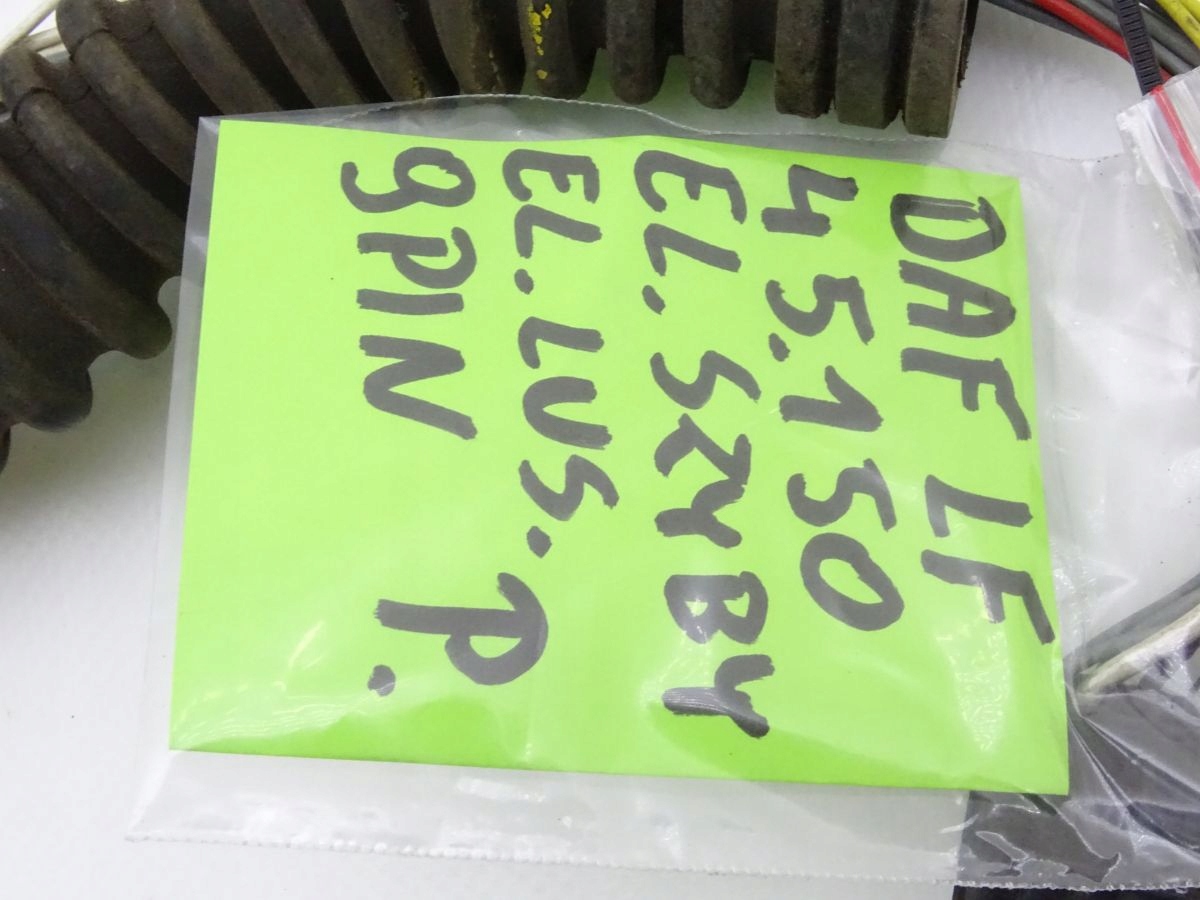 DAF LF
45.150
EL. SZYBY
EL. LUS. P.
9PIN